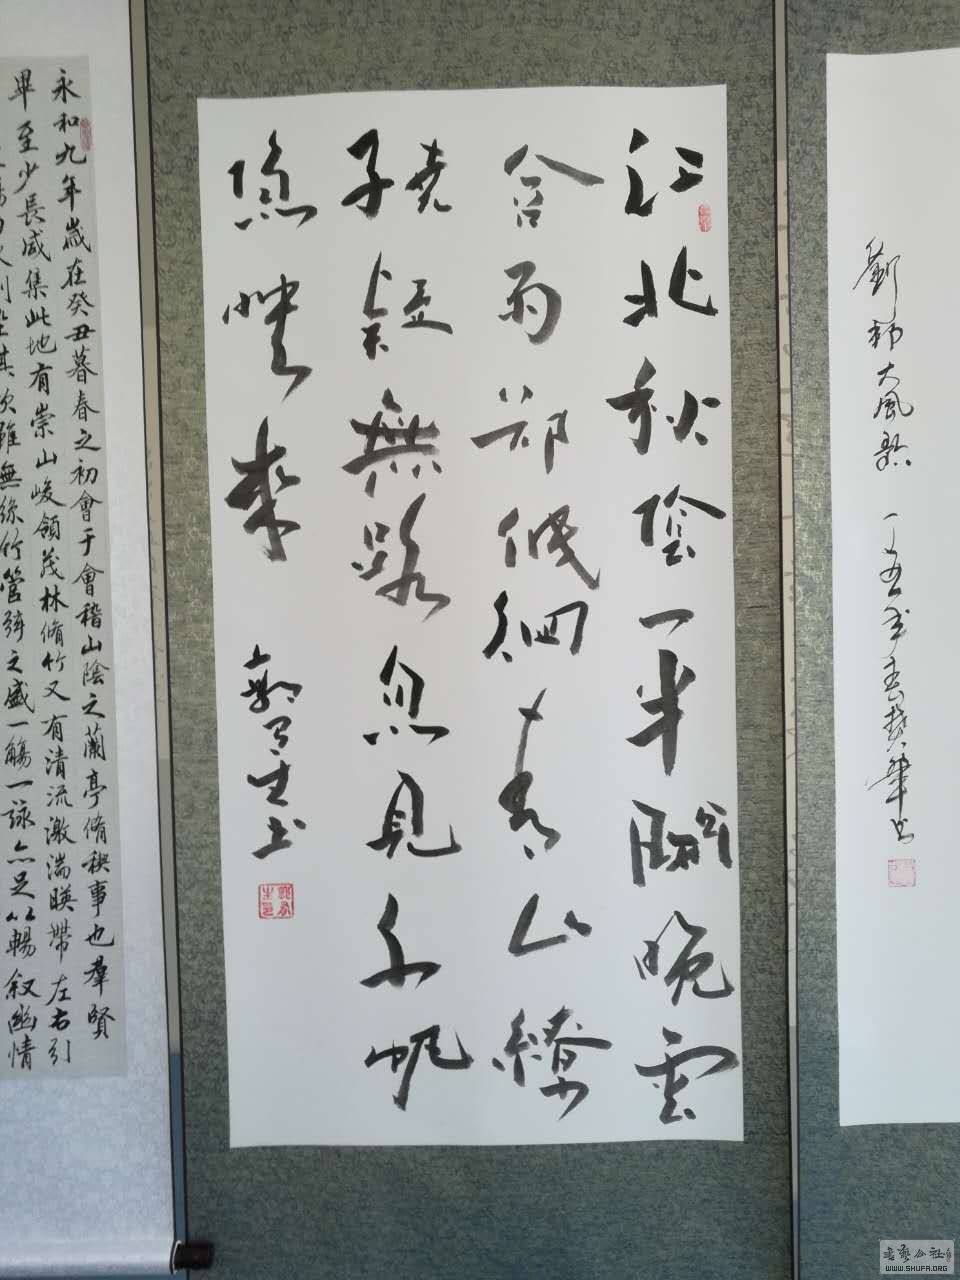 劉邦大風歌
江北秋陰一半開晚雲
含雨却低徊青山繚
繞疑無路忽見千帆
隱映來
永和九年歲在癸丑暮春之初會于會稽山陰之蘭亭脩稧事也羣賢
畢至少長咸集此地有崇山峻領茂林脩竹又有清流激湍暎帶左右引
其次雖無絲竹管弦之盛一觴一詠亦足以暢叙幽情
WWW.SHUFA.ORG